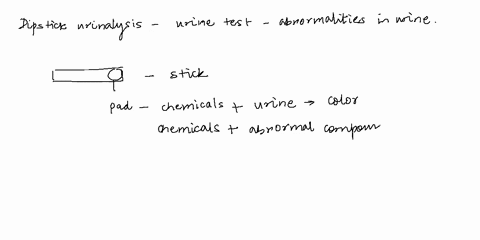 Dipstick urinalysis - urine test - abnormalities in urine.
- stick
pad - chemicals + urine → color
chemicals + abnormal compoun